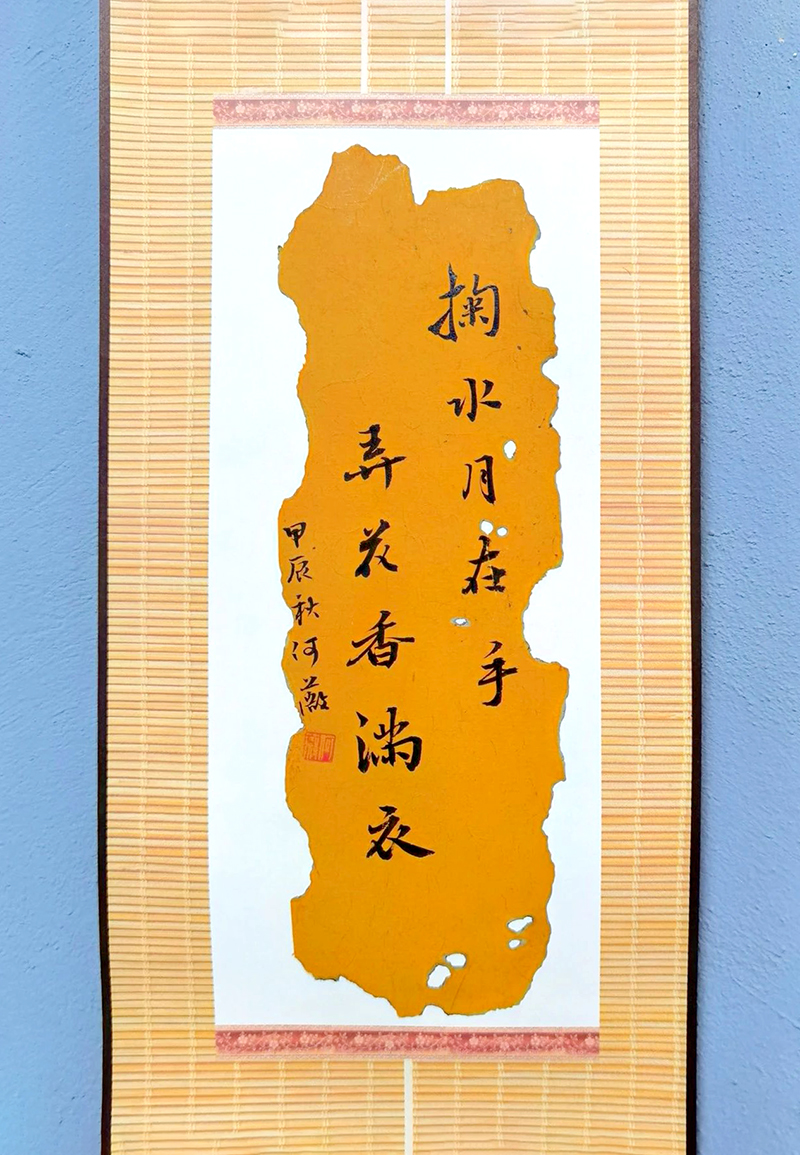 掬水月在手
弄花香满衣
甲辰秋河薇